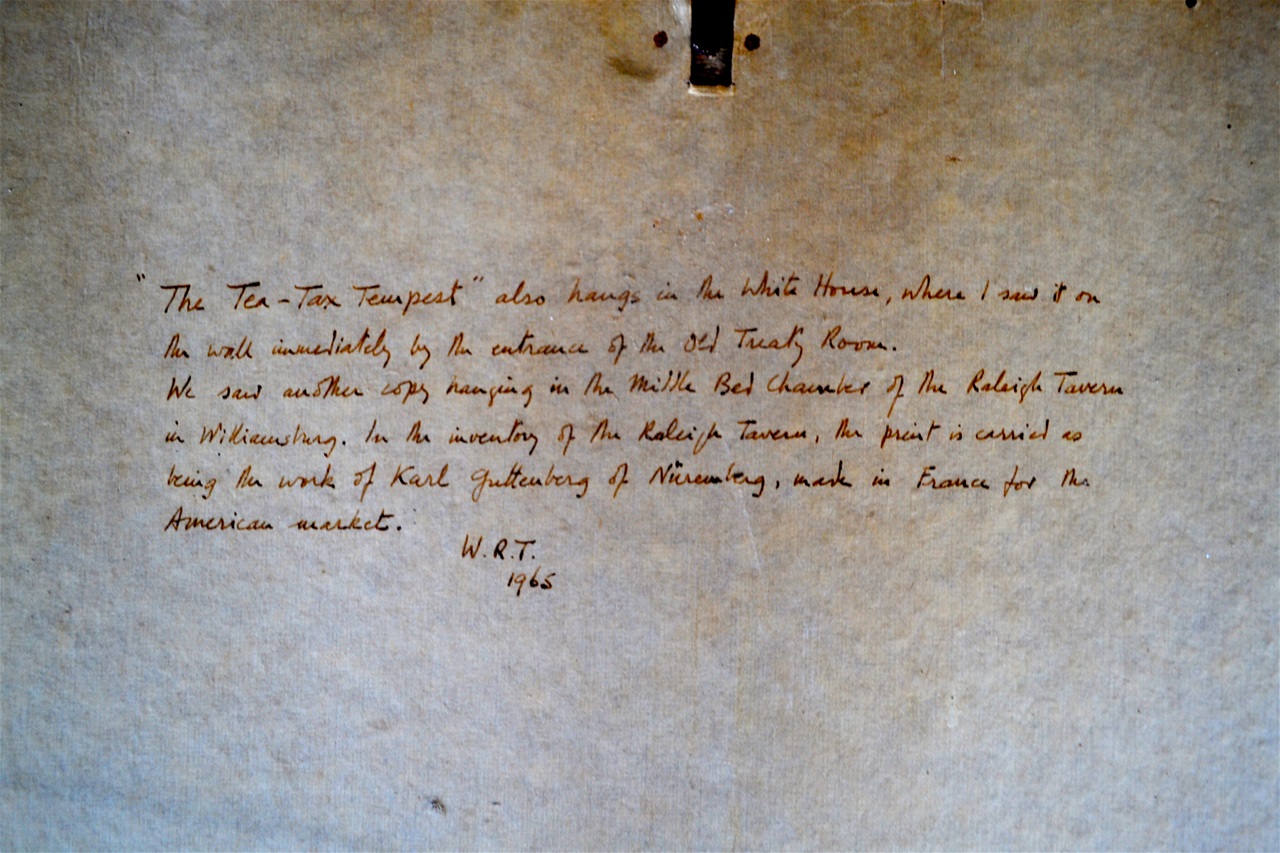 "The Tea-Tax Tempest" also hangs in the White House, where I saw it on
the wall immediately by the entrance of the Old Treaty Room.
We saw another copy hanging in the Middle Bed Chamber of the Raleigh Tavern
in Williamsburg. In the inventory of the Raleigh Tavern, the print is carried as
being the work of Karl Guttenberg of Nüremberg, made in France for the
American market.
W.R.T.
1965